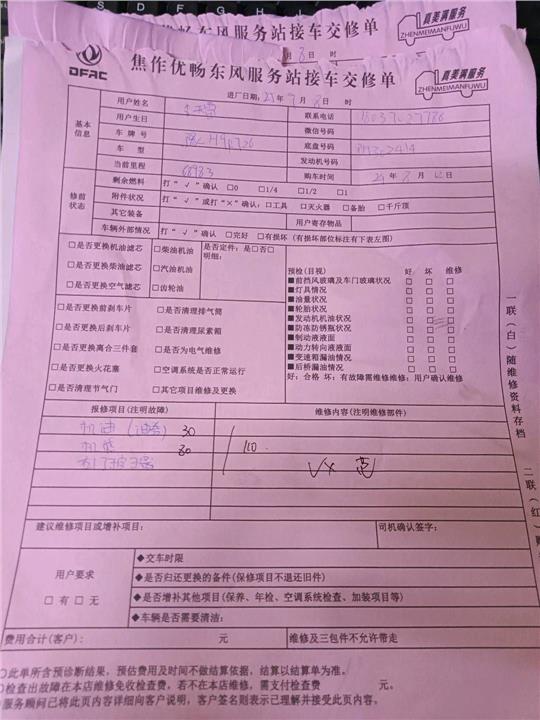 畅东风服务站接车交修单
真美满服务
ZHENMEIMANFUWU
月8日 时
DFAC
焦作优畅东风服务站接车交修单
真美满服务
ZHENMEIMANFUWU
进厂日期: 月8日 时
基本信息
用户姓名
联系电话
用户生日
微信号码
车牌号
底盘号码
车型
发动机号码
当前里程
购车时间
年8月 日
修前状态
剩余燃料 打“√”确认 □0 □1/4 □1/2 □1
附件状况 打“√”或打“×”确认:□工具 □灭火器 □备胎 □千斤顶
其它装备
用户寄存物品
车辆外部情况 打“√”确认 □完好 □有损坏(有损坏部位标注有下表左图)
□是否更换机油滤芯 □柴油机油 是否定件:是□否□
明细:
□是否更换柴油滤芯 □汽油机油
□是否更换空气滤芯 □齿轮油
□是否更换前刹车片 □是否清理排气筒
□是否更换后刹车片 □是否清理尿素箱
□是否更换离合三件套 □是否为电气维修
□是否更换火花塞 □空调系统是否正常运行
□是否清理节气门 □其它项目维修及更换
预检(目视) 好 坏 维修
■前挡风玻璃及车门玻璃状况 □ □ □
■灯具情况 □ □ □
■油量状况 □ □ □
■轮胎状况 □ □ □
■发动机机油状况 □ □ □
■防冻防锈瓶状况 □ □ □
■制动液液面 □ □ □
■动力转向液液面 □ □ □
■变速箱漏油情况 □ □ □
■后桥漏油情况 □ □ □
好:合格 坏:有故障需维修维修:用户确认维修
报修项目(注明故障) 维修内容(注明维修部件)
机油 30
机滤 80
110
建议维修项目或增补项目: 司机确认签字:
用户要求
□有□无
◆交车时限
◆是否归还更换的备件(保修项目不退还旧件)
◆是否增补其他项目(保养、年检、空调系统检查、加装项目等)
◆车辆是否需要清油:
费用合计(客户): 元 维修及三包件不允许带走
○此单所含预诊断结果,预估费用及时间不做结算依据,结算以结算单为准。
○检查出故障在本店维修免收检查费,若不在本店维修,需支付检查费 元。
服务顾问已将此页内容详细向客户说明,客户签名则表示已理解并接受此页内容。
一联(白)随维修资料存档
二联(红)